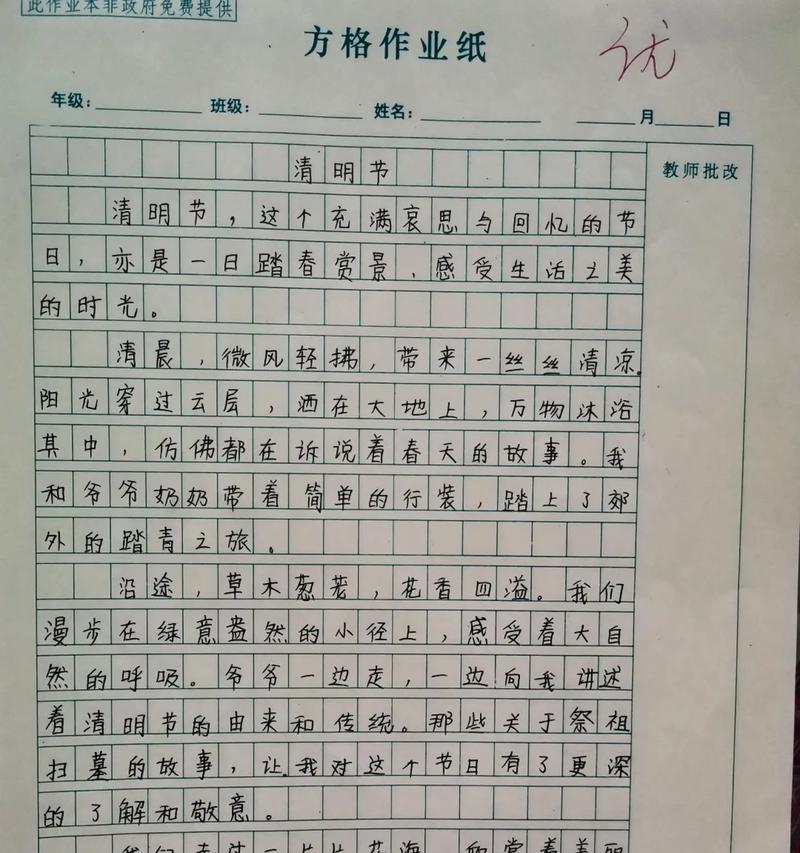 此作业本非政府免费提供
方格作业纸
优
年级: 班级: 姓名: 月 日
教师批改
清明节
清明节,这个充满哀思与回忆的节
日,亦是一日踏春赏景,感受生活之美
的时光。
清晨,微风轻拂,带来一丝丝清凉。
阳光穿过云层,洒在大地上,万物沐浴
其中,仿佛都在诉说着春天的故事。我
和爷爷奶奶带着简单的行装,踏上了郊
外的踏青之旅。
沿途,草木葱茏,花香四溢。我们
漫步在绿意盎然的小径上,感受着大自
然的呼吸。爷爷一边走,一边向我讲述
着清明节的由来和传统。那些关于祭祖
扫墓的故事,让我对这个节日有了更深
的了解和敬意。
我们走过一片片花海,欣赏着美丽